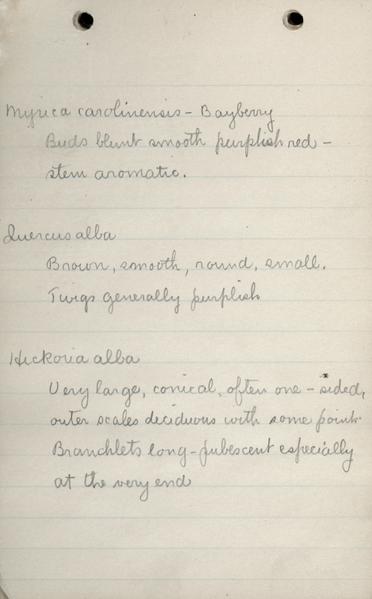 Myrica carolinensis - Bayberry
Buds blunt smooth purplish red -
stem aromatic.
Quercus alba
Brown, smooth, round, small.
Twigs generally purplish
Hickoria alba
Very large, conical, often one - sided,
outer scales deciduous with some point.
Branchlets long - pubescent especially
at the very end